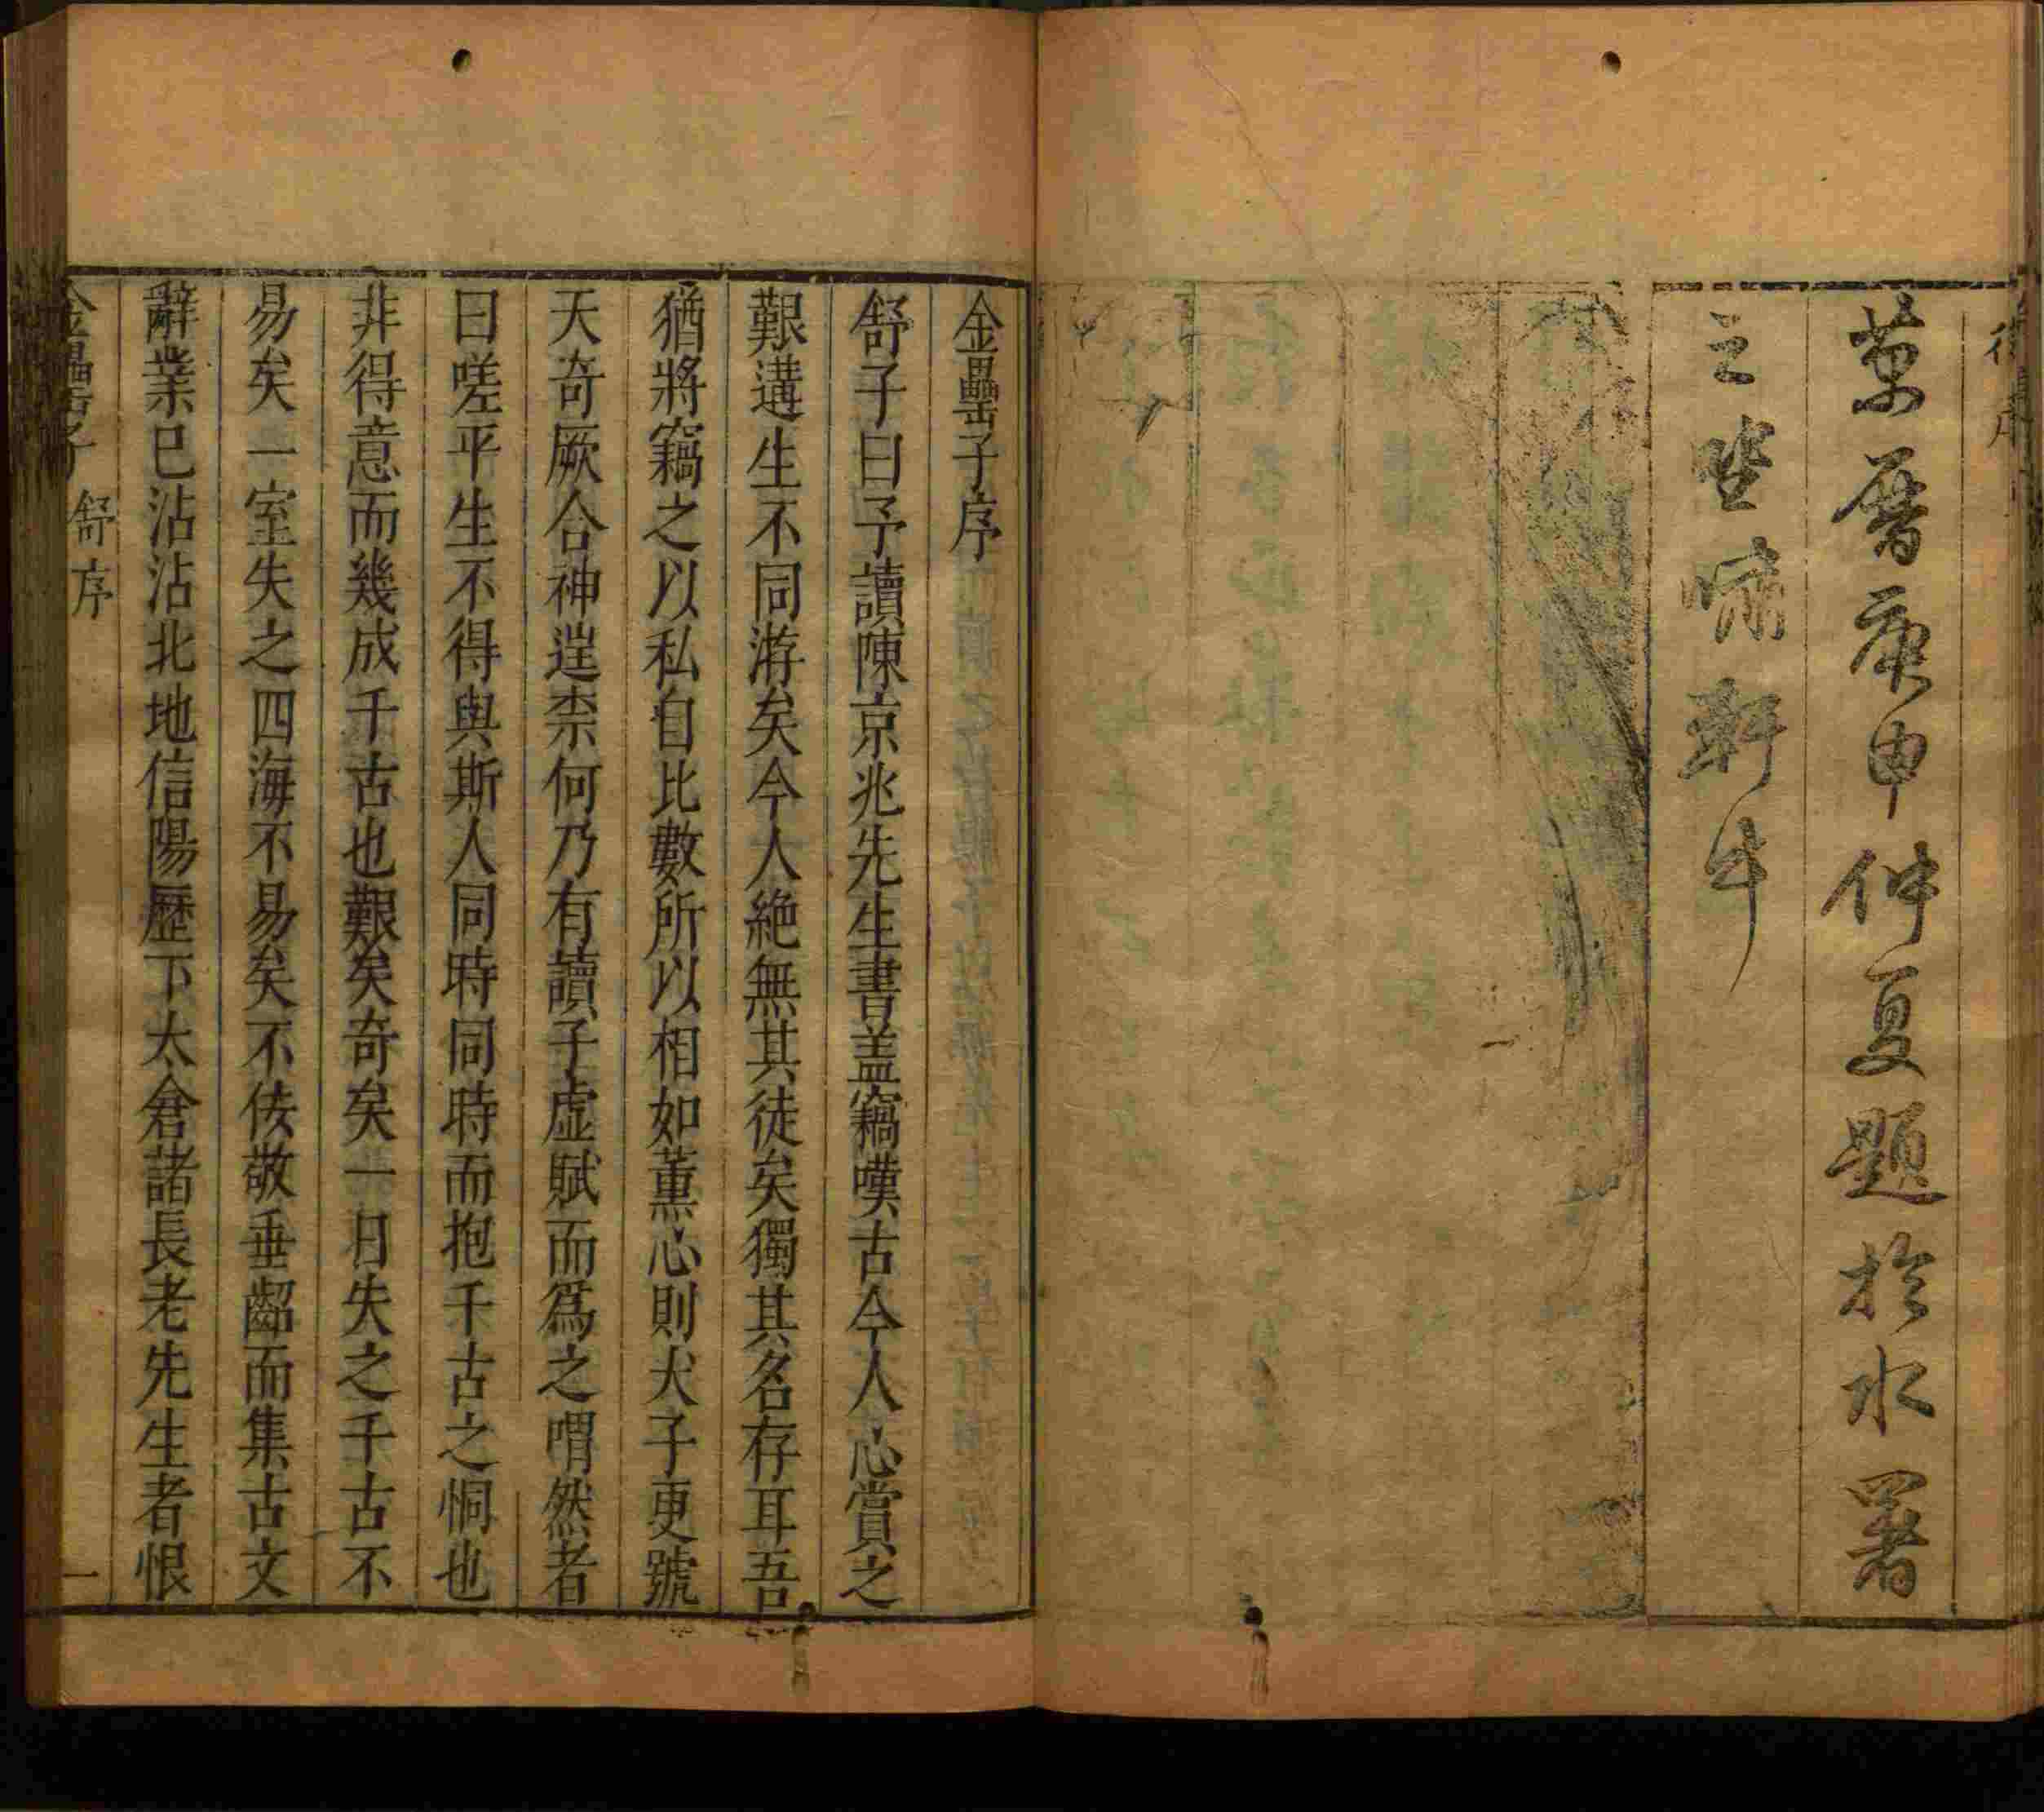 萬曆庚申仲夏題於水署
之坐嘯軒
金罍子序
舒子曰予讀陳京兆先生書盖竊嘆古今人心賞之
艱遘生不同游矣今人絶無其徒矣獨其名存耳吾
猶將竊之以私自比數所以相如薰心則犬子更號
天奇厥合神逞柰何乃有讀子虛賦而爲之喟然者
曰嗟乎生不得與斯人同時同時而抱千古之恫也
非得意而幾成千古也艱矣奇矣一日失之千古不
易矣一室失之四海不易矣不佞敬垂齠而集古文
辭業已沾沾北地信陽歷下太倉諸長老先生者恨
金罍子 舒序 一